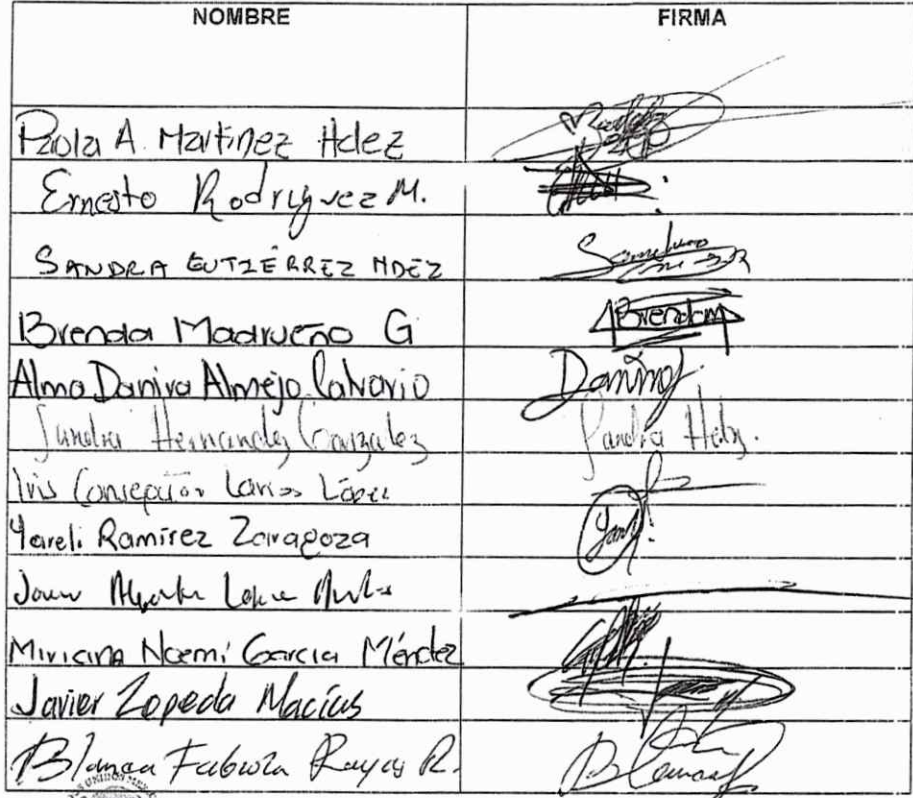 NOMBRE FIRMA
Paola A. Martinez Hdez
Ernesto Rodriguez M.
SANDRA GUTIÉRREZ HDEZ
Brenda Madrueño G Brendam
Alma Daniva Almejo Calvario
Sandra Hernandez Gonzalez Sandra Hdz.
Iris Concepción Larios López
Yareli Ramírez Zaragoza
Miriana Noemi Garcia Méndez
Javier Zepeda Macías
Blanca Fabiola Rayas R.